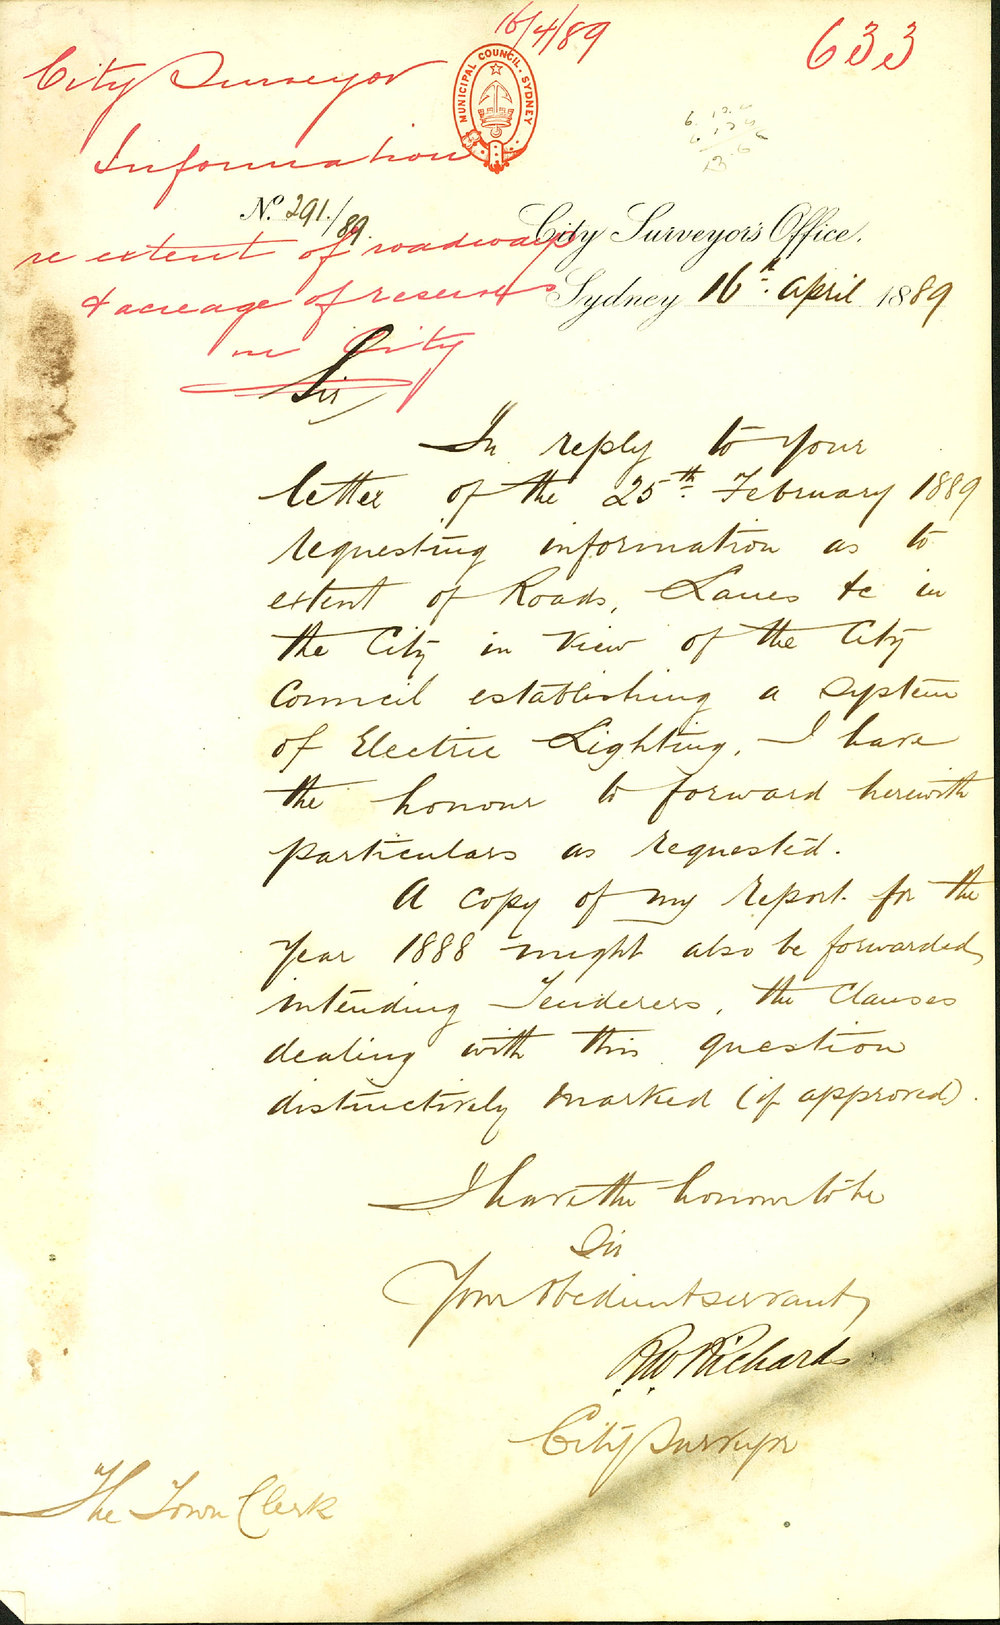 16/4/89
633
City Surveyor
MUNICIPAL COUNCIL. SYDNEY
Information
No. 291./89.
City Surveyor's Office.
re extent of roadways
& acreage of reserves
Sydney 16th. April 1889
in City
Sir
In reply to your
letter of the 25th. February 1889
requesting information as to
extent of Roads, Lanes &c in
the City in view of the City
Council establishing a system
of Electric Lighting, I have
the honour to forward herewith
particulars as requested.
A copy of my report for the
year 1888 might also be forwarded
intending Tenderers, the Clauses
dealing with this question
distinctively marked (if approved).
I have the honour to be
Sir
Your obedient servant,
R.W. Richards
City Surveyor
The Town Clerk